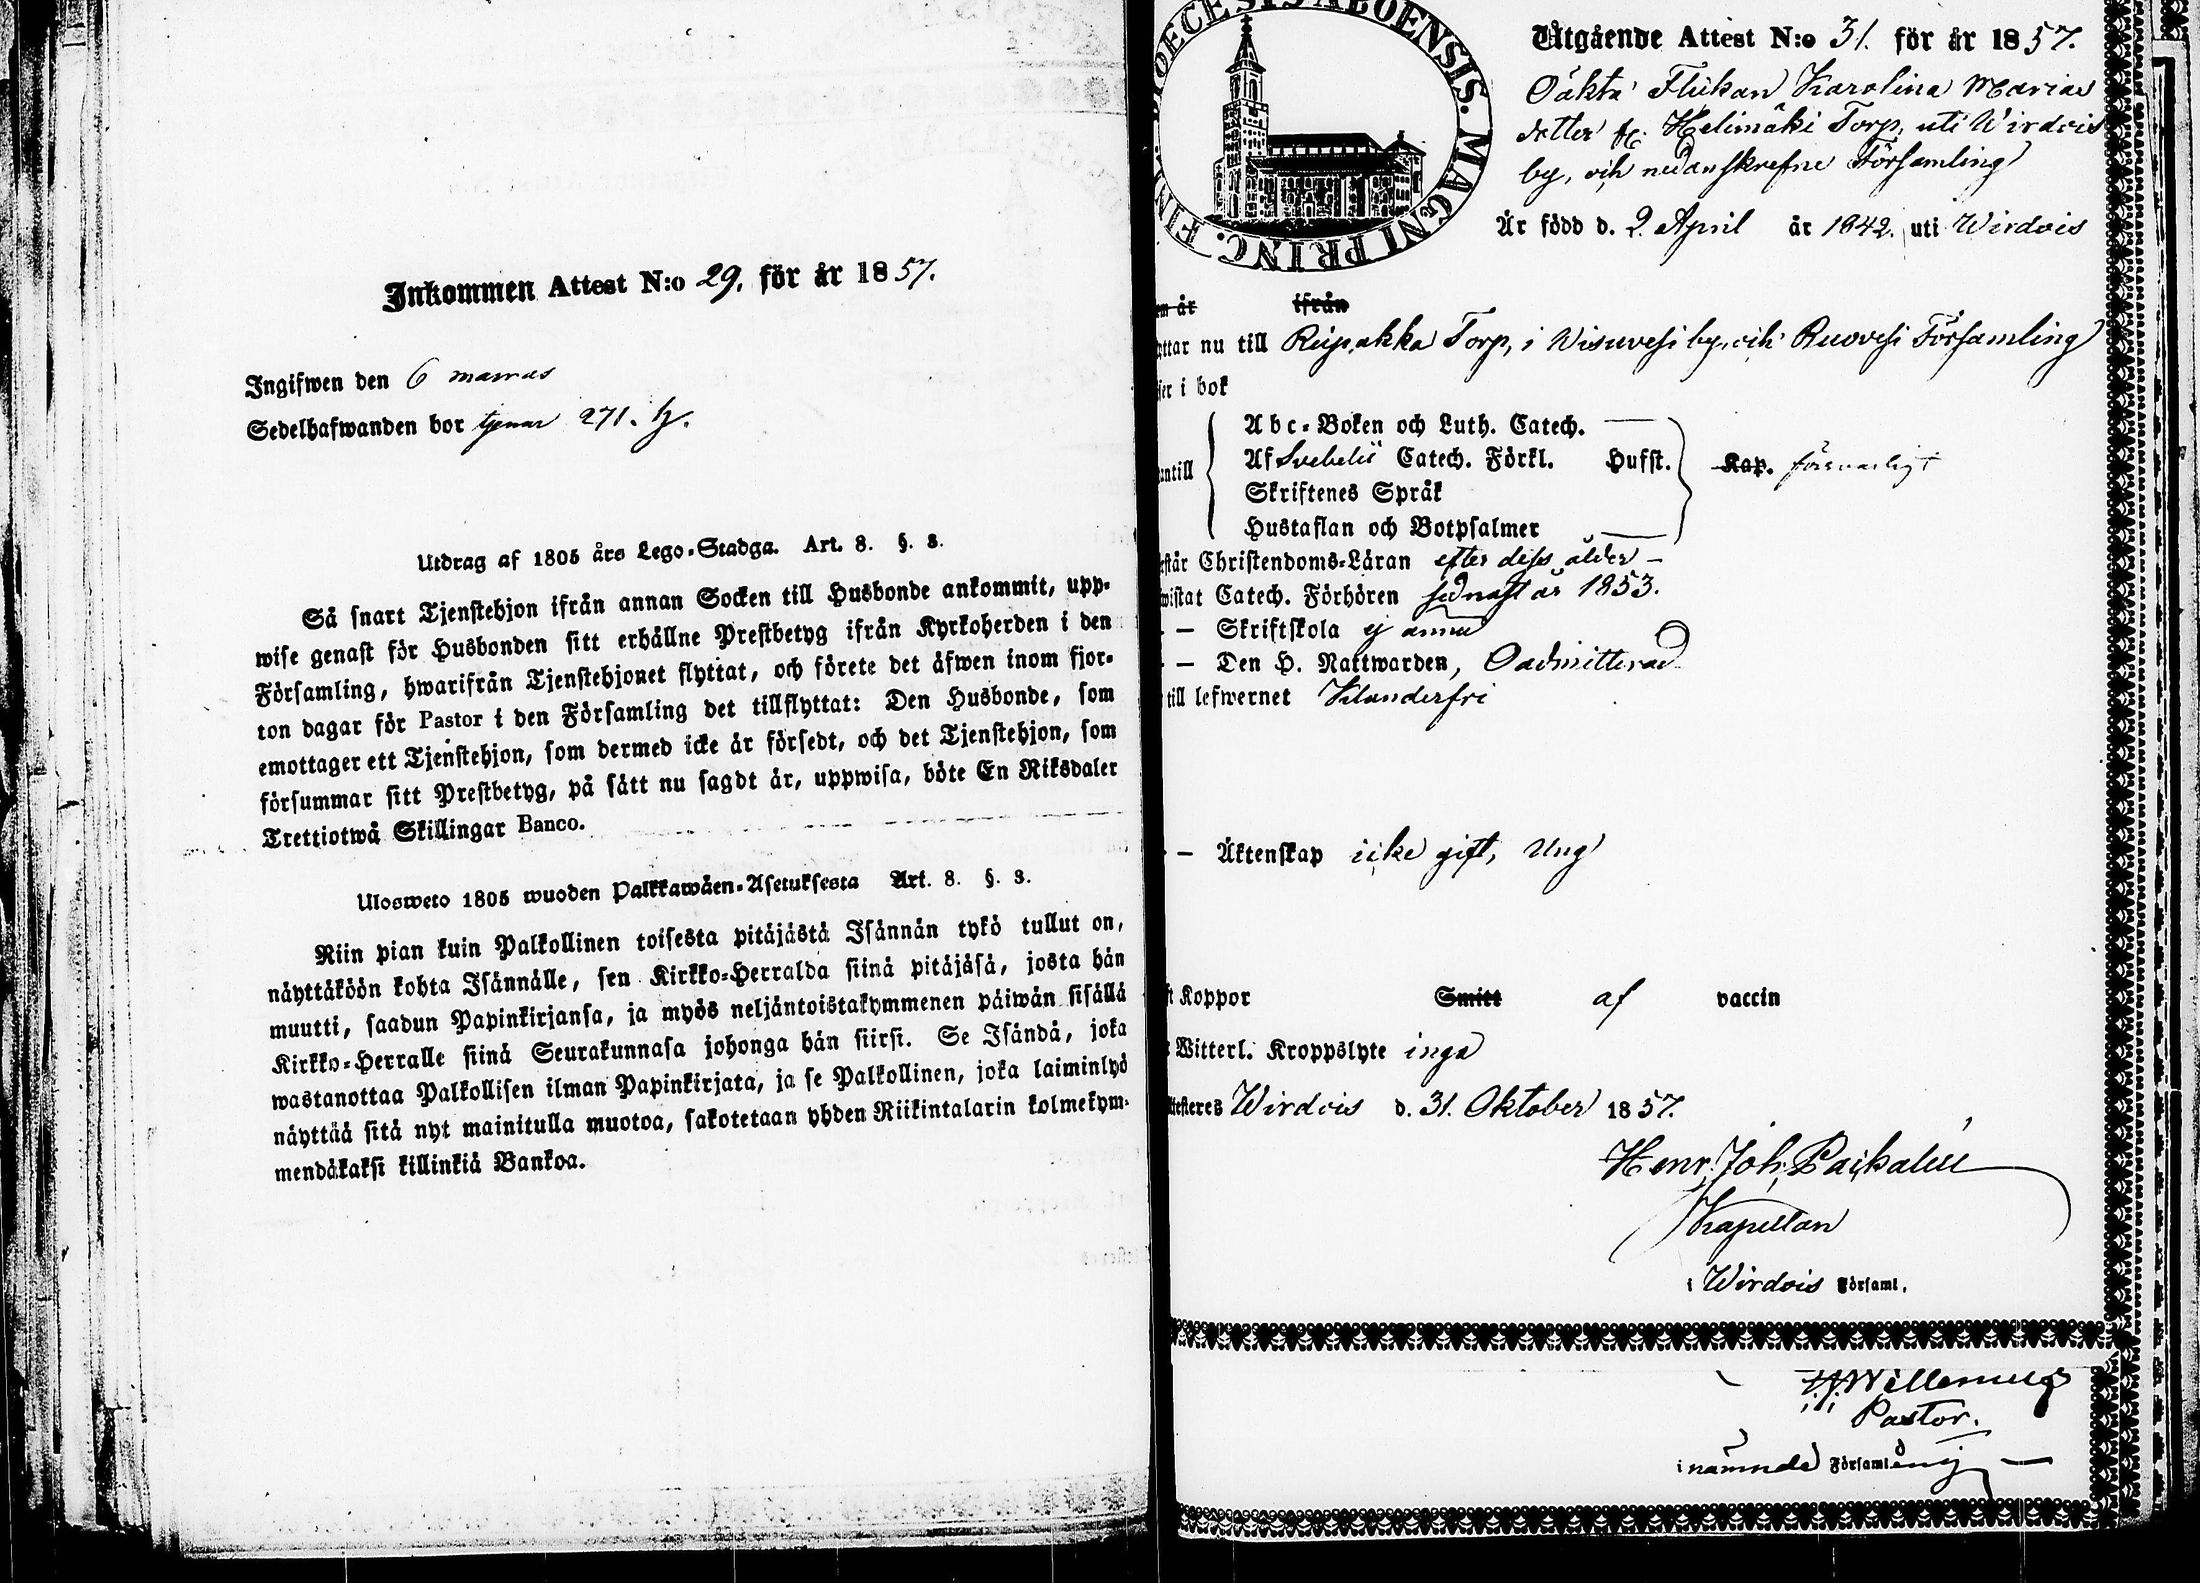 Inkommen Attest N:o 29. för år 1857.
Ingifwen den 6 marras
Sedelhafwanden bor tjenar 271. h.
Utdrag af 1805 års Lego-Stadga. Art. 8. §. 3.
Så snart Tjenstehjon ifrån annan Socken till Husbonde ankommit, upp-
wise genast för Husbonden sitt erhållne Prestbetyg ifrån Kyrkoherden i den
Församling, hwarifrån Tjenstehjonet flyttat, och förete det äfwen inom fjor-
ton dagar för Pastor i den Församling det tillflyttat: Den Husbonde, som
emottager ett Tjenstehjon, som dermed icke är försedt, och det Tjenstehjon, som
försummar sitt Prestbetyg, på sätt nu sagdt är, uppwisa, böte En Riksdaler
Trettiotwå Skillingar Banco.
Ulosweto 1805 wuoden Palkkawäen-Asetuksesta Art. 8. §. 3.
Niin pian kuin Palkollinen toisesta pitäjästä Isännän tykö tullut on,
näyttäköön kohta Isännälle, sen Kirkko-Herralda siinä pitäjäsä, josta hän
muutti, saadun Papinkirjansa, ja myös neljäntoistakymmenen päiwän sisällä
Kirkko-Herralle siinä Seurakunnasa johonga hän siirsi. Se Isändä, joka
wastanottaa Palkollisen ilman Papinkirjata, ja se Palkollinen, joka laiminlyö
näyttää sitä nyt mainitulla muotoa, sakotetaan yhden Riikintalarin kolmekym-
mendäkaksi killinkiä Bankoa.
DIOECESIS ABOENSIS. MAGNI PRINC. FIN
Utgående Attest N:o 31. för år 1857.
Oäkta Flickan Karolina Marias
dotter fr. Helimäki Torp, uti Wirdois
by, och nedanskrefne Församling
Är född d. 2. April år 1842. uti Wirdois
om år ifrån
ttar nu till Torp, i Wisuvesi by, och Ruovesi Församling
ser i bok
Abc-Boken och Luth. Catech. —
antill Af Svebelii Catech. Förkl. Hufst. Kap. försvarligt
Skriftenes Språk
Hustaflan och Botpsalmer —
står Christendoms-Läran efter dess ålder —
wistat Catech. Förhören sednast år 1853.
— Skriftskola ej ännu
— Den H. Nattwarden, Oadmitterad
till lefwernet Klanderfri
— Äktenskap icke gift, Ung
ft Koppor Smitt af vaccin
Witterl. Kroppslyte inga
ttesteres Wirdois d. 31. Oktober 1857.
Henr. Joh.
Kapellan
i Wirdois Församl.
Pastor.
i nämnde Församling —